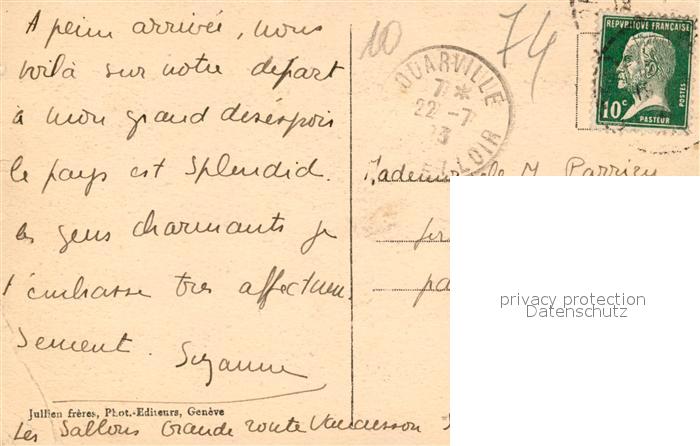 A peine arrivée, nous
voilà sur notre départ
à mon grand désespoir
le pays est splendid.
les gens charmants je
t'embrasse tres affectueu
sement. Suzanne
Jullien frères, Phot.-Editeurs, Genève
Les Sablons Grande route
10
74
OUARVILLE
7 *
22 -7
23
ET-LOIR
REPUBLIQUE FRANÇAISE
10c
POSTES
PASTEUR
Mademoiselle M
privacy protection
Datenschutz